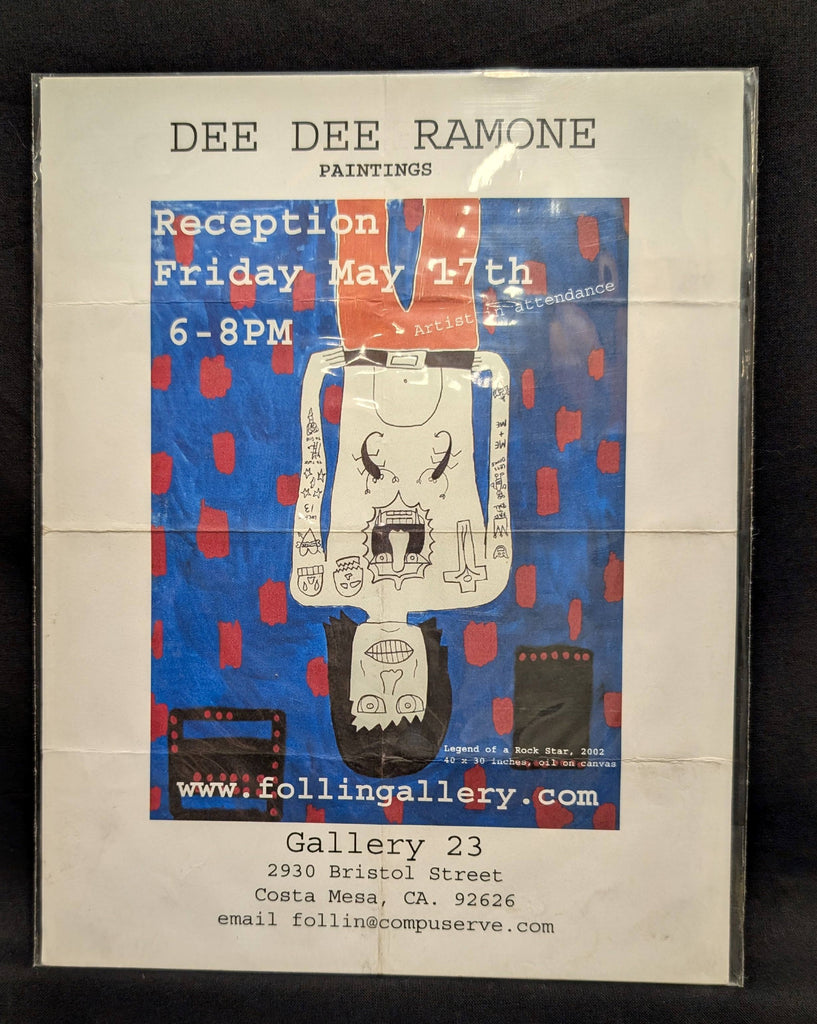 DEE DEE RAMONE
PAINTINGS
Reception
Friday May 17th
6-8PM
Artist in attendance
13
Legend of a Rock Star, 2002
40 x 30 inches, oil on canvas
www.follingallery.com
Gallery 23
2930 Bristol Street
Costa Mesa, CA. 92626
email follin@compuserve.com